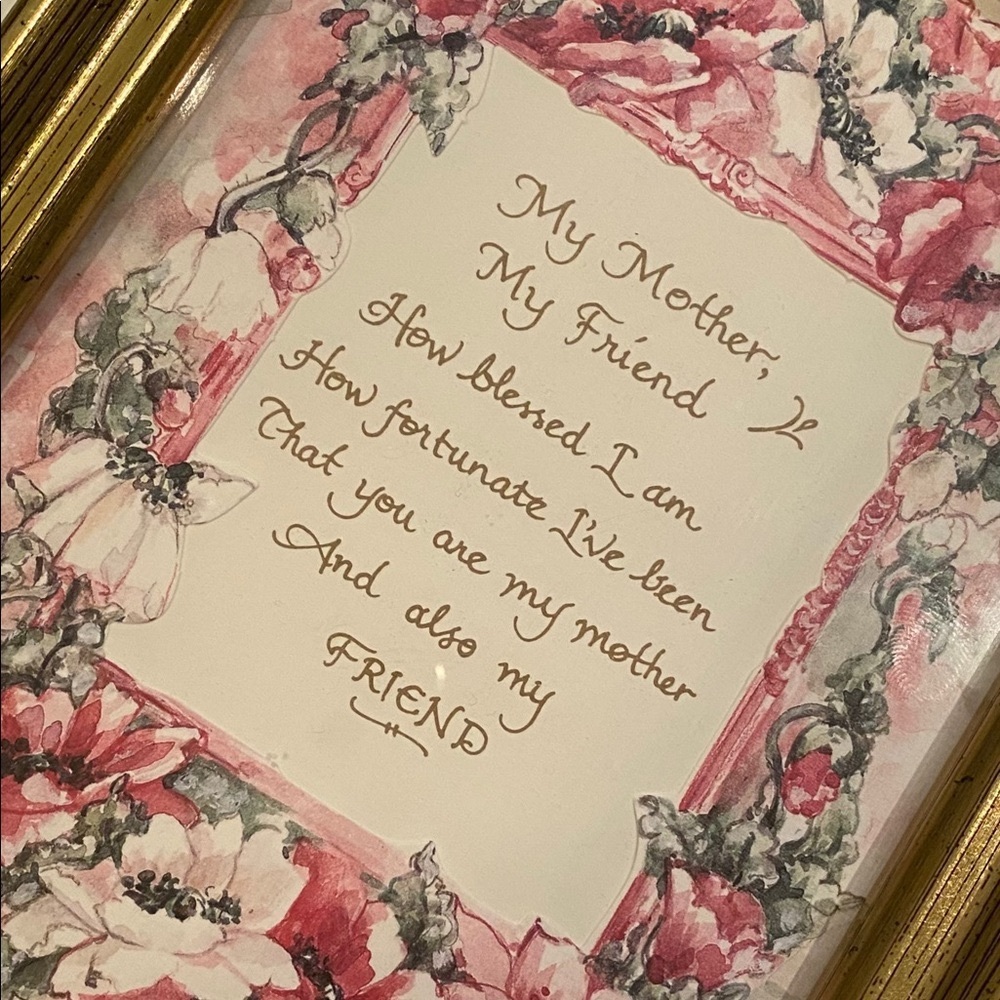 My Mother,
My Friend
How blessed I am
How fortunate I've been
That you are my mother
And also my
FRIEND